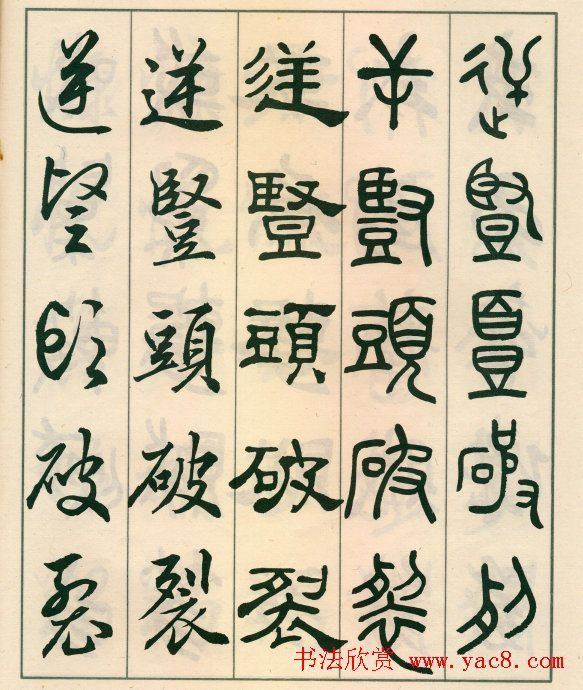 逆豎頭破列
屰豎頭破裂
逆豎頭破裂
逆豎頭破裂
逆豎頭破裂
书法欣赏 www.yac8.com